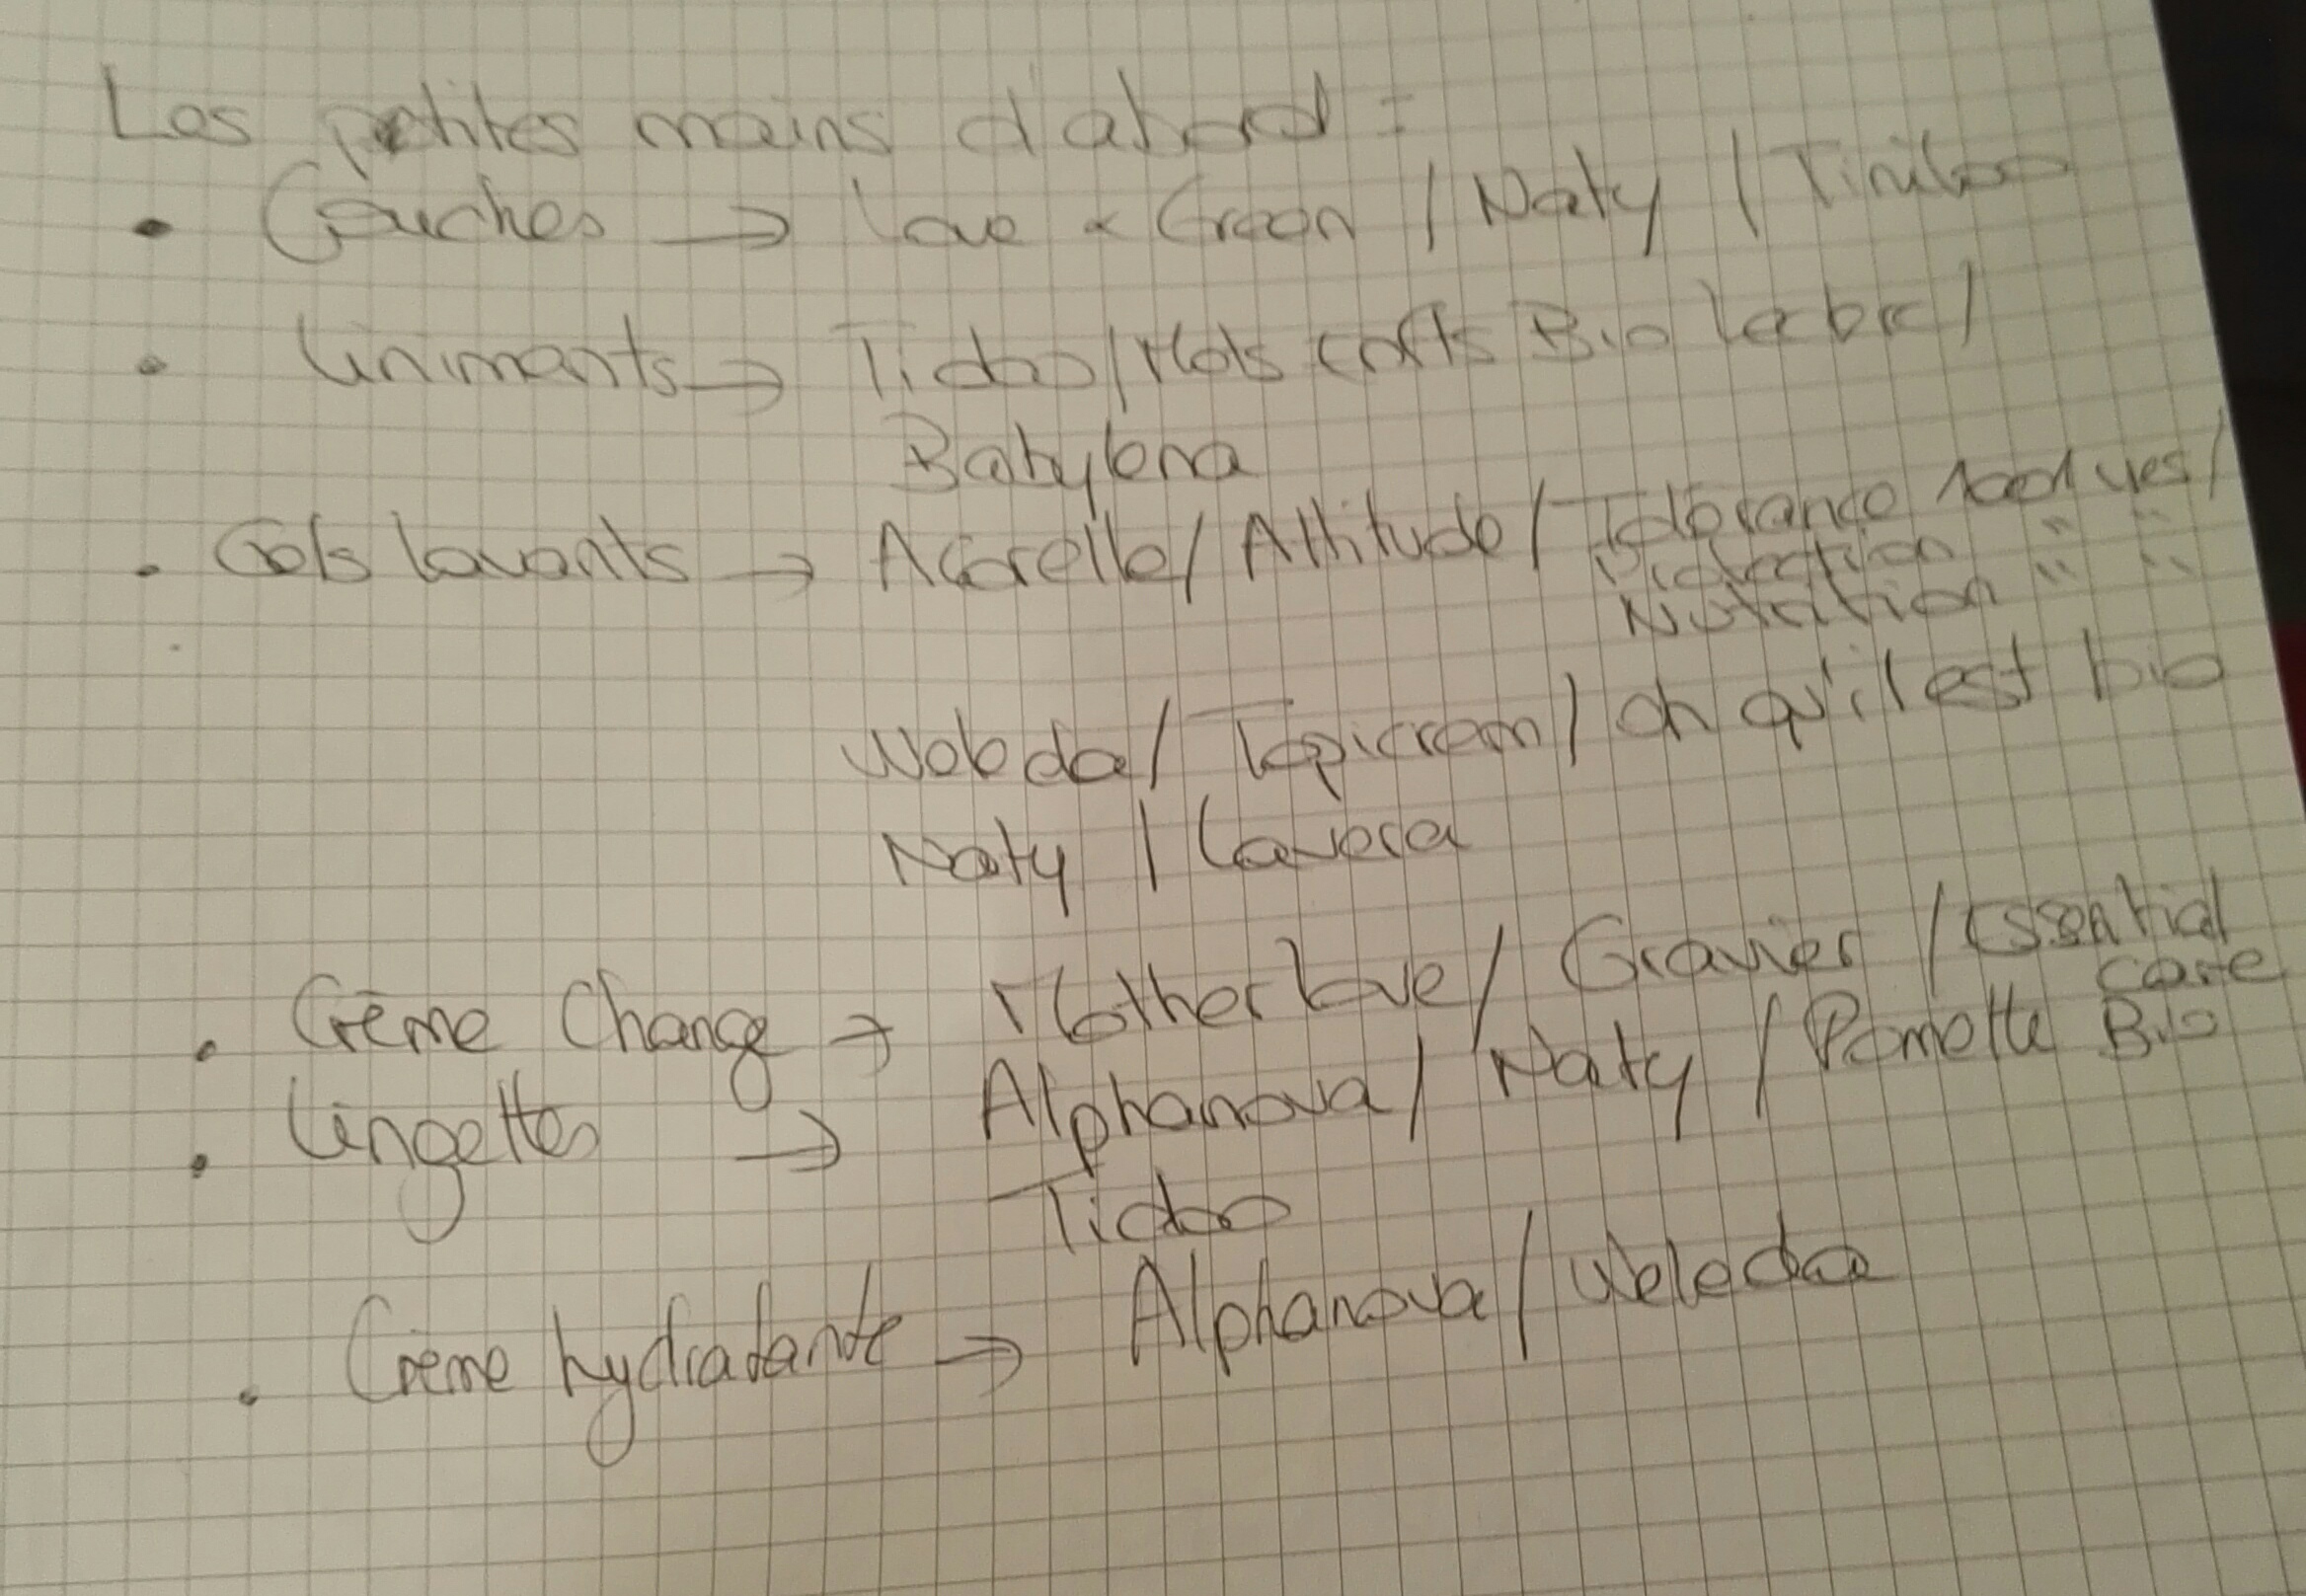 Les petites mains d'abord :
• Couches → Love & Green / Naty / Tiniloo
• Liniments → Tidoo / Mots
Babylena
• Gels lavants → Acorelle / Attitude / Tolérance
Protection " "
Nutrition " "
Weleda / Topicrem / oh qu'il est bio
Naty / Lavera
• Crème Change → Motherlove / Gravier / Essential
care
• Lingettes → Alphanova / Naty / Pomette Bio
Tidoo
• Crème hydratante → Alphanova / Weleda